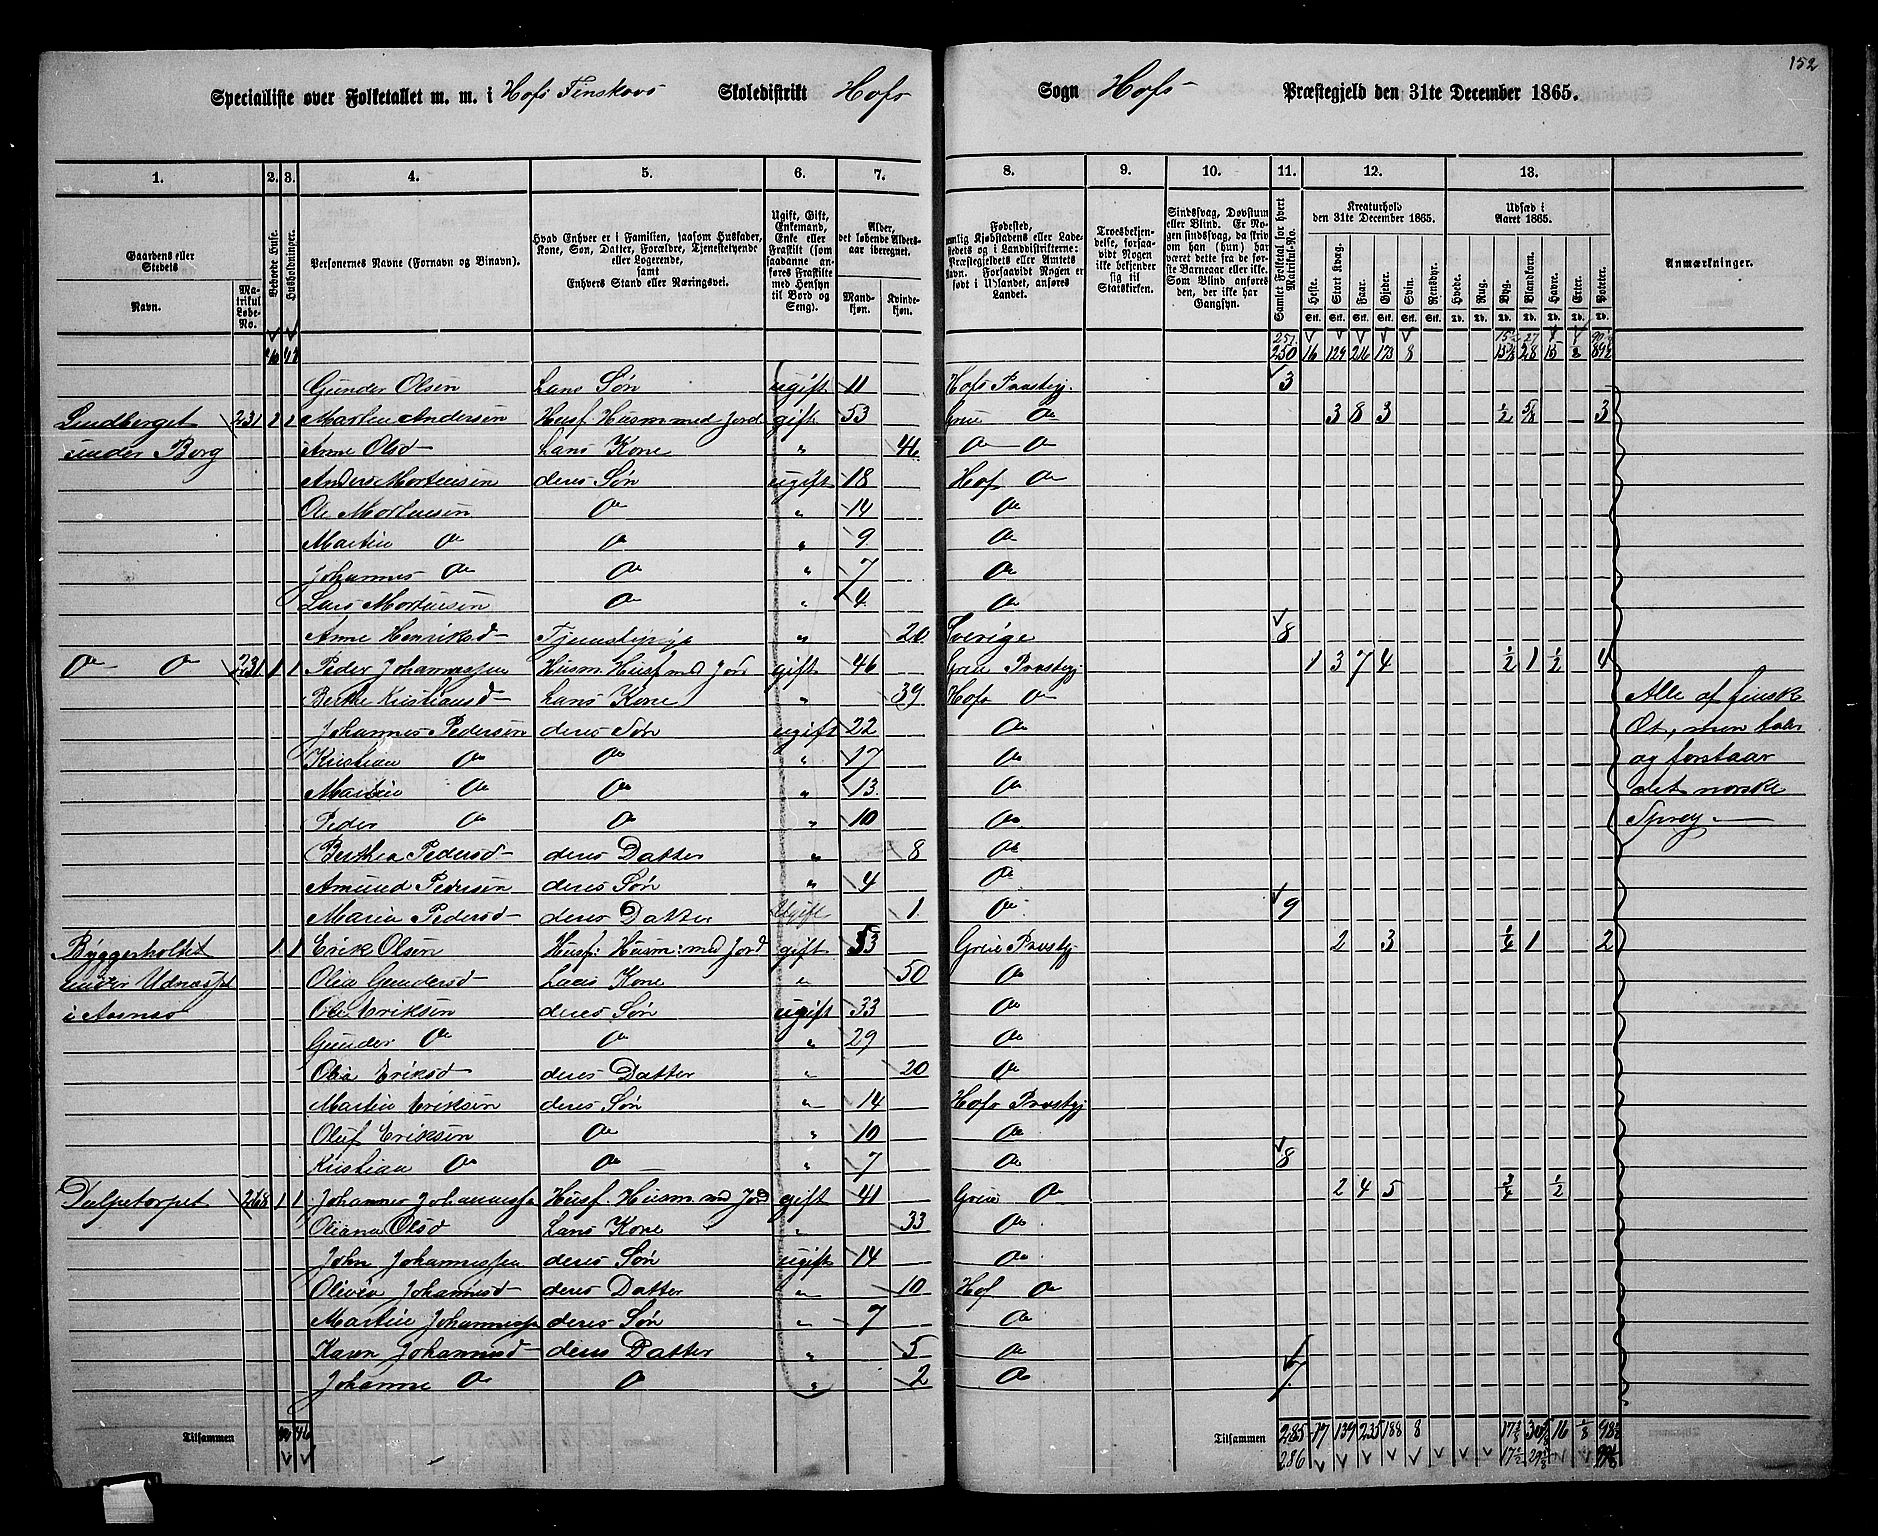 152
Specialliste over Folketallet m. m. i Hofs Finskovs Skoledistrikt Hofs Sogn Hofs Præstegjeld den 31te December 1865.
1. 2. 3. 4. 5. 6. 7. 8. 9. 10. 11. 12. 13.
Gaardens eller Stedets
Navn.
Matrikul Løbe-No.
Beboede Huse.
Husholdninger.
Personernes Navne (Fornavn og Binavn).
Hvad Enhver er i Familien, saasom Husfader, Kone, Søn, Datter, Forældre, Tjenestetyende eller Logerende, samt Enhvers Stand eller Næringsvei.
Ugift, Gift, Enkemand, Enke eller Fraskilt (som saadanne anføres Fraskilte med Hensyn til Bord og Seng).
Alder, det løbende Aldersaar iberegnet.
Mandkjøn. Kvindekjøn.
Fødested, nemlig Kjøbstadens eller Ladestedets og i Landdistrikterne: Præstegjeldets eller Amtets Navn. Forsaavidt Nogen er født i Udlandet, anføres Landet.
Troesbekjendelse, forsaavidt Nogen ikke bekjender sig til Statskirken.
Sindssvag, Døvstum eller Blind. Er Nogen sindssvag, da skrives om han (hun) har været dette fra de første Barneaar eller ikke. Som Blind anføres den, der ikke har Gangsyn.
Samlet Folketal for hvert Matrikul-No.
Kreaturhold den 31te December 1865.
Heste. Stort Kvæg. Faar. Gjeder. Svin. Rensdyr.
Udsæd i Aaret 1865.
Hvede. Rug. Byg. Blandkorn. Havre. Erter. Poteter.
Anmærkninger.
251
250 16 129 216 173 8 15 1/2 28 15 1/8 89 1/2
Gunder Olsen hans Søn ugift 11 Hofs Præstegj. 3
Lindberget 231 1 1 Morten Andersen Husf. Husm med Jord gift 53 Grue do 3 8 3 1/2 5/8 3
under Borg Anne Olsd hans Kone " 46 do do
Anders Mortensen deres Søn ugift 18 Hof do
Ole Mortensen do " 14 do
Martin do do " 9 do
Johannes do do " 7 do
Lars Mortensen do " 4 do
Anne Henriksd Tjenestepige " 20 Sverige 8
do do 231 1 1 Peder Johannessen Husm. Husf. med Jord gift 46 Grue Præstegj 1 3 7 4 1/2 1 1/2 4
Berthe Kristiansd hans Kone " 39 Hofs do Alle af finsk
Johannes Pedersen deres Søn ugift 22 do Æt, men taler
Kristian do do " 17 do og forstaar
Martin do do " 13 do det norske
Peder do do " 10 do Sprog
Berthea Pedersd deres Datter " 8 do
Amund Pedersen deres Søn " 4 do
Maria Pedersd deres Datter Ugift 1 do 9
Byggerholtet 1 1 Erik Olsen Husf: Husm: med Jord gift 53 Grue Præstegj 2 3 1/4 1 2
under Udnæsset Olia Gundersd hans Kone " 50 do
i Aasnæs Ole Eriksen deres Søn ugift 33 do
Gunder do do " 29 do
Olia Eriksd deres Datter " 20 do
Martin Eriksen deres Søn " 14 Hofs Præstegj
Oluf Eriksen do " 10 do
Kristian do do " 7 do 8
Dulpetorpet 268 1 1 Johannes Johannessen Husf. Husm. med Jord gift 41 Grue do 2 4 5 3/4 1/2
Oliana Olsd hans Kone " 33 do
John Johannessen deres Søn ugift 14 do
Olivia Johannesd deres Datter " 10 Hof do
Martin Johannessen deres Søn " 7 do
Karen Johannesd deres Datter " 5 do
Johanne do do " 2 do 7
Tilsammen 46 Tilsammen 285 17 139 235 188 8 30 5/8 16 1/8
286